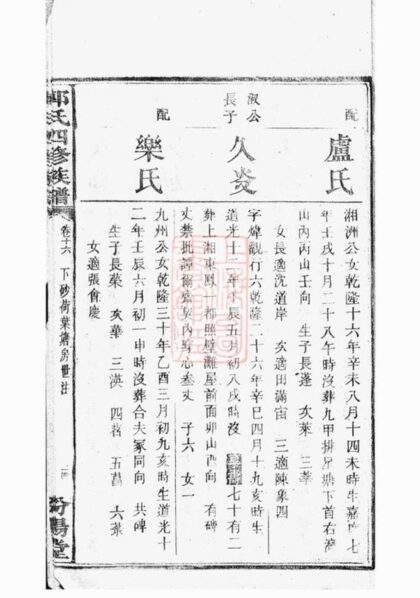 配
盧氏
湘洲公女乾隆十六年辛未八月十四未時生嘉慶七
年壬戌十月二十八午時沒葬九甲排 塘下首右灣
山内丙山壬向 生子長蓬 次萊 三莘
女長適沈道岸 次適田滿宙 三適陳象四
淑公
長子
久炎
字煒觀行六乾隆二十六年辛巳四月十九亥時生
道光十二年壬辰五月初八戌時沒 七十有二
葬上湘東鳳十都照壁灘屋前面卯山酉向 有碑
丈禁批譚爾 契内穿心叁丈 子六 女一
配
樂氏
九州公女乾隆三十年乙酉三月初九亥時生道光十
二年壬辰六月初一申時沒葬合夫冢同向 共碑
生子長榮 次華 三渶 四茗 五菖 六
女適張會慶
郭氏四修族譜
卷十六 下砂荷葉塘房世注
汾陽堂